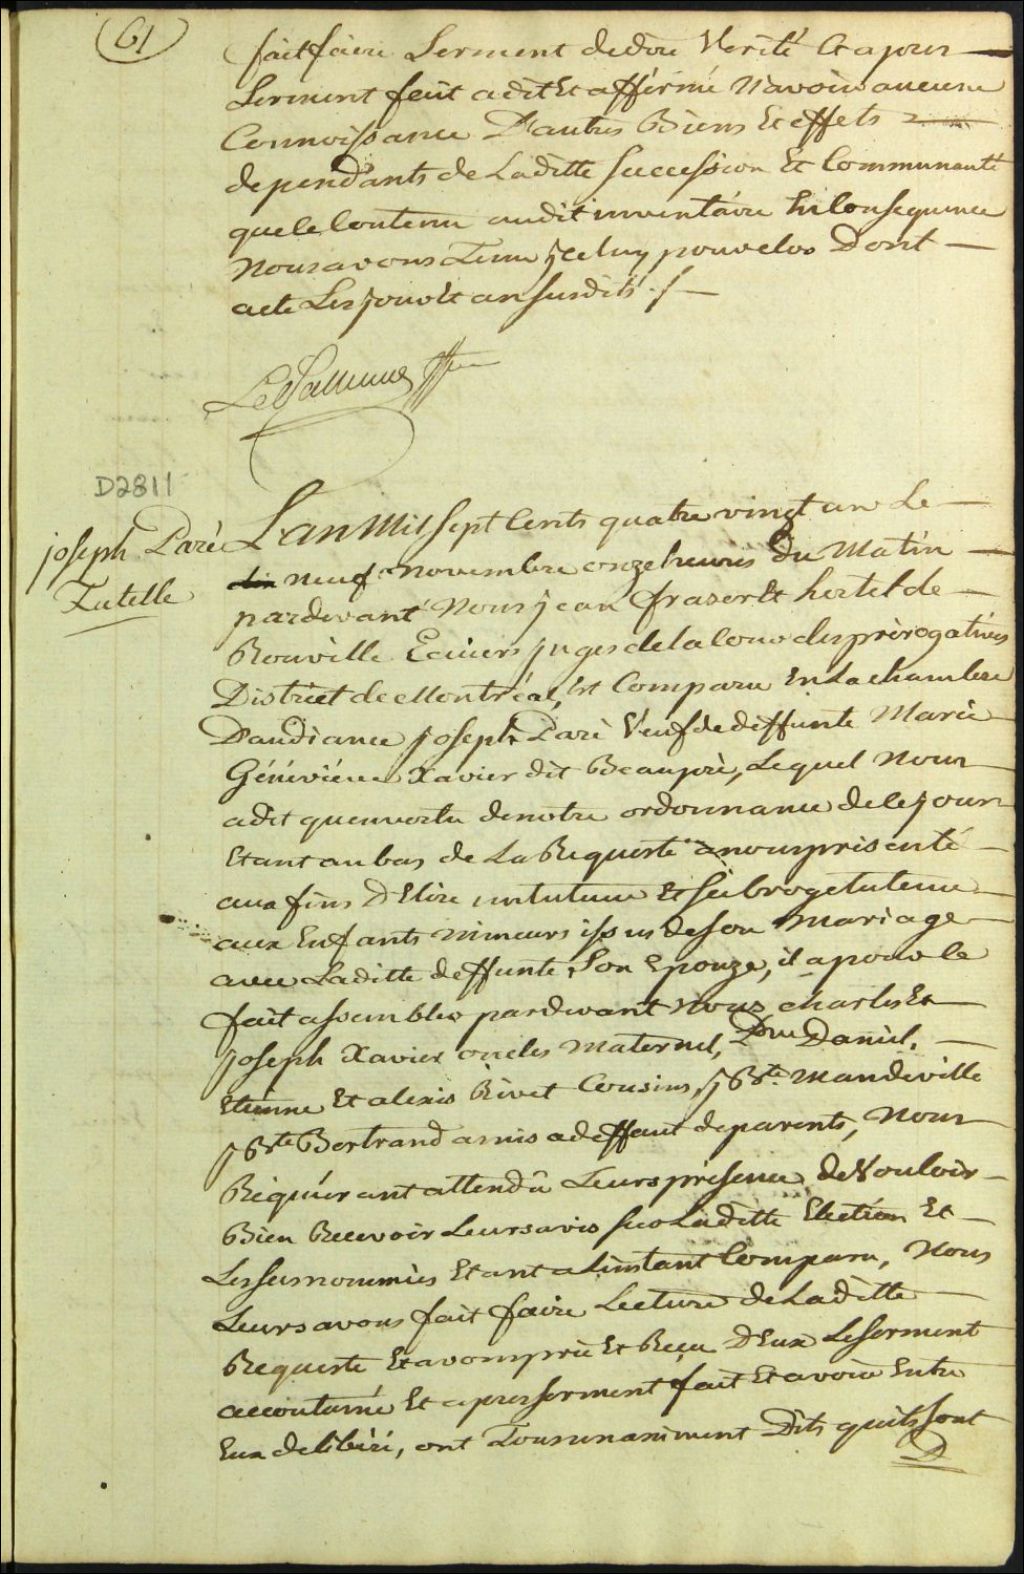 61
fait faire Serment de dire Verité Et apres
Serment fait a dit Et affirmé N'avoir aucune
Connoissance D'autres Biens Et effets
dependants de Laditte Succession Et Communauté
que le Contenu audit inventaire En Consequence
Nous avons Tenu jceluy pour clos Dont
acte Les jour Et an susdits
D2811
joseph Paré
Tutelle
L'an Mil sept Cents quatre vingt un Le
neuf novembre onze heures du Matin
pardevant Nous jean fraser Et hertel de
Rouville Ecuiers juges de la Cour des prérogatives
District de Montréal, Est Comparu En La chambre
D'audiance joseph Paré Veuf de deffunte Marie
Généviéve Xavier dit Beaupré, Lequel Nous
a dit qu'en vertu de notre ordonnance de le jour
Etant au bas de La Requeste a nous presenté
aux fins D'Elire un tuteur Et Subrogé tuteur
aux Enfants Mineurs issus de son Mariage
avec Laditte deffunte, Son Epouze, il a pour le
fait assembler pardevant Nous charles Et
joseph Xavier oncles Maternel, Daniel,
Etienne Et alexis Rivet Cousins, j Bte Mandeville
j Bte Bertrand amis a deffaut de parents, Nous
Requérant attendû Leurs présence de Vouloir
Bien Recevoir Leurs avis sur Laditte Election Et
Les susnommés Etant a Linstant Comparu, Nous
Leurs avons fait faire Lecture de Laditte
Requeste Et avons pris Et Reçu D'Eux Le serment
accoutumé Et apres serment fait Et avoir Entre
Eux deliberé, ont Tous unaniment Dits quils sont